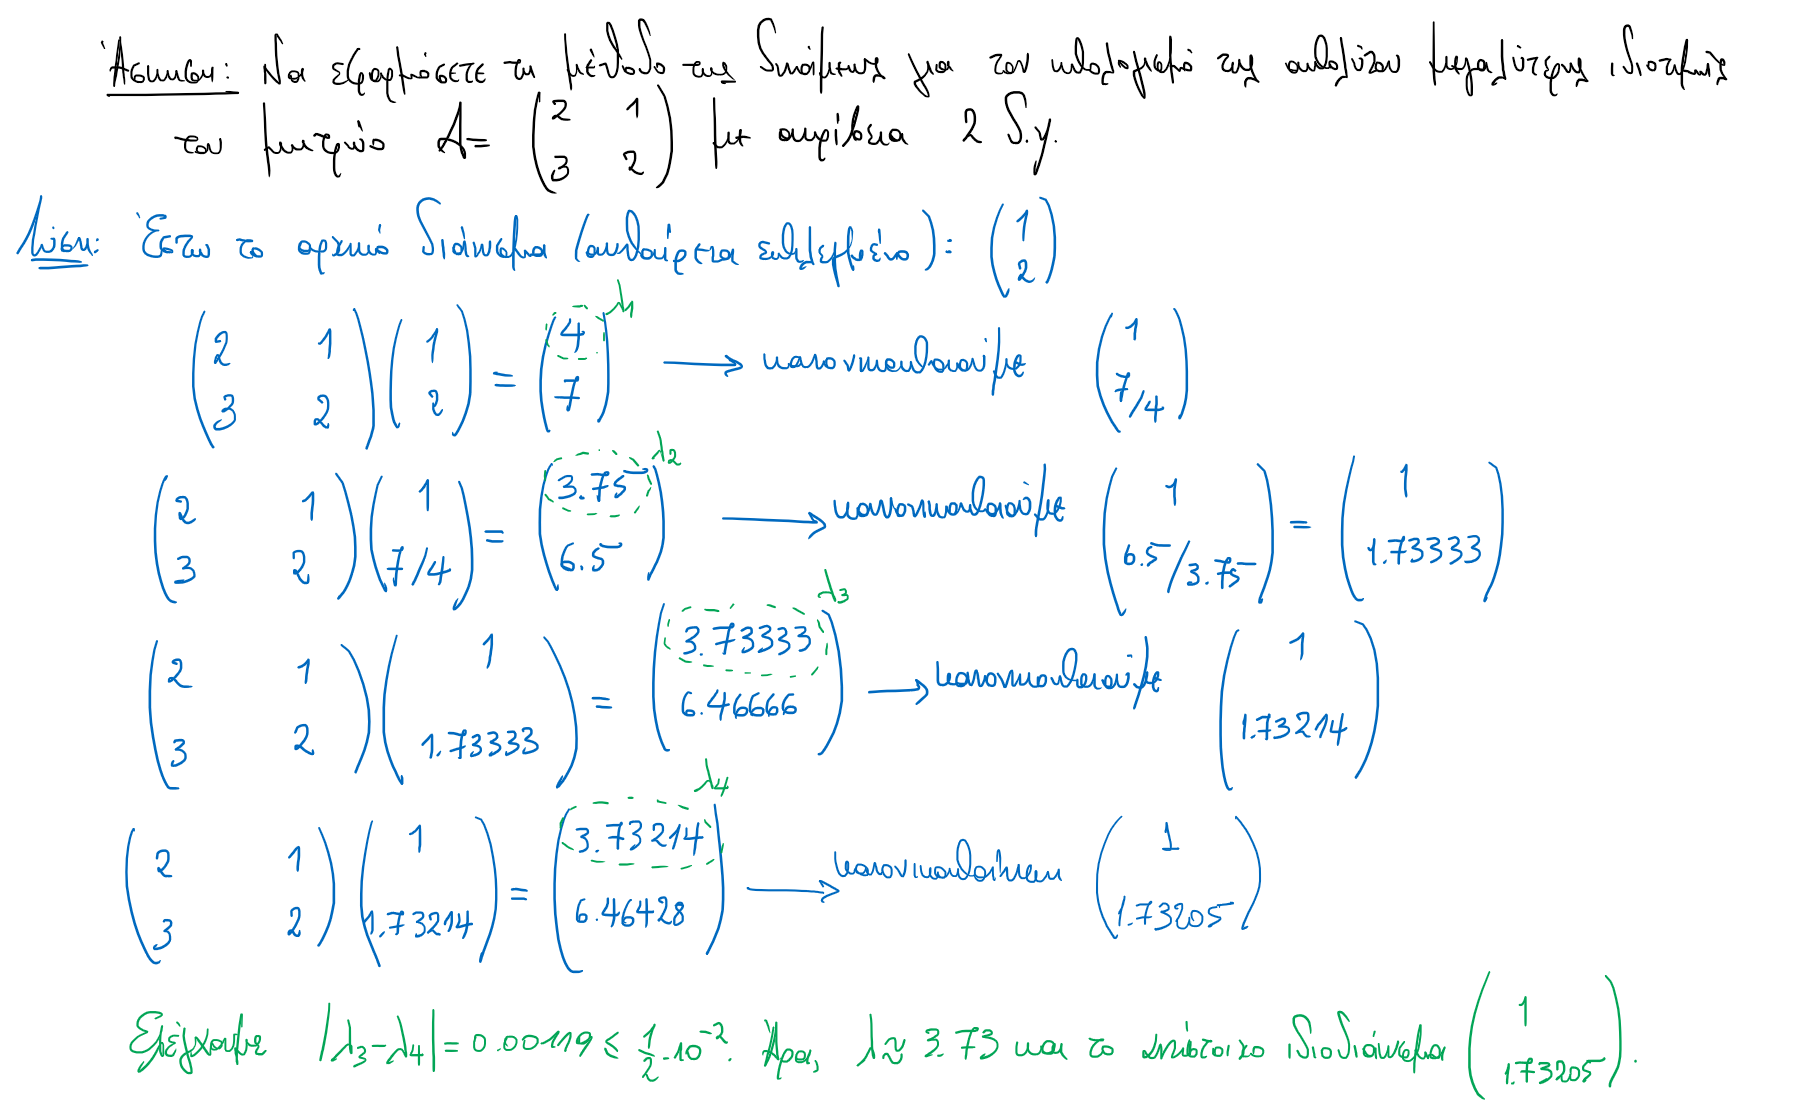 Άσκηση: Να εφαρμόσετε τη μέθοδο της δυνάμεως για τον υπολογισμό της απολύτου μεγαλύτερης ιδιοτιμής
του μητρώο A= (2 1 3 2) με ακρίβεια 2 δ.ψ.
Λύση: Έστω το αρχικό διάνυσμα (αυθαίρετα επιλεγμένο): (1 2)
(2 1 3 2) (1 2) = (4 7) λ1 → κανονικοποιούμε (1 7/4)
(2 1 3 2) (1 7/4) = (3.75 6.5) λ2 → κανονικοποιούμε (1 6.5/3.75) = (1 1.73333)
(2 1 3 2) (1 1.73333) = (3.73333 6.46666) λ3 → κανονικοποιούμε (1 1.73214)
(2 1 3 2) (1 1.73214) = (3.73214 6.46428) λ4 → κανονικοποίηση (1 1.73205)
Ελέγχουμε |λ3-λ4| = 0.00119 ≤ 1/2 · 10^-2. Άρα, λ ≈ 3.73 και το αντίστοιχο ιδιοδιάνυσμα (1 1.73205).